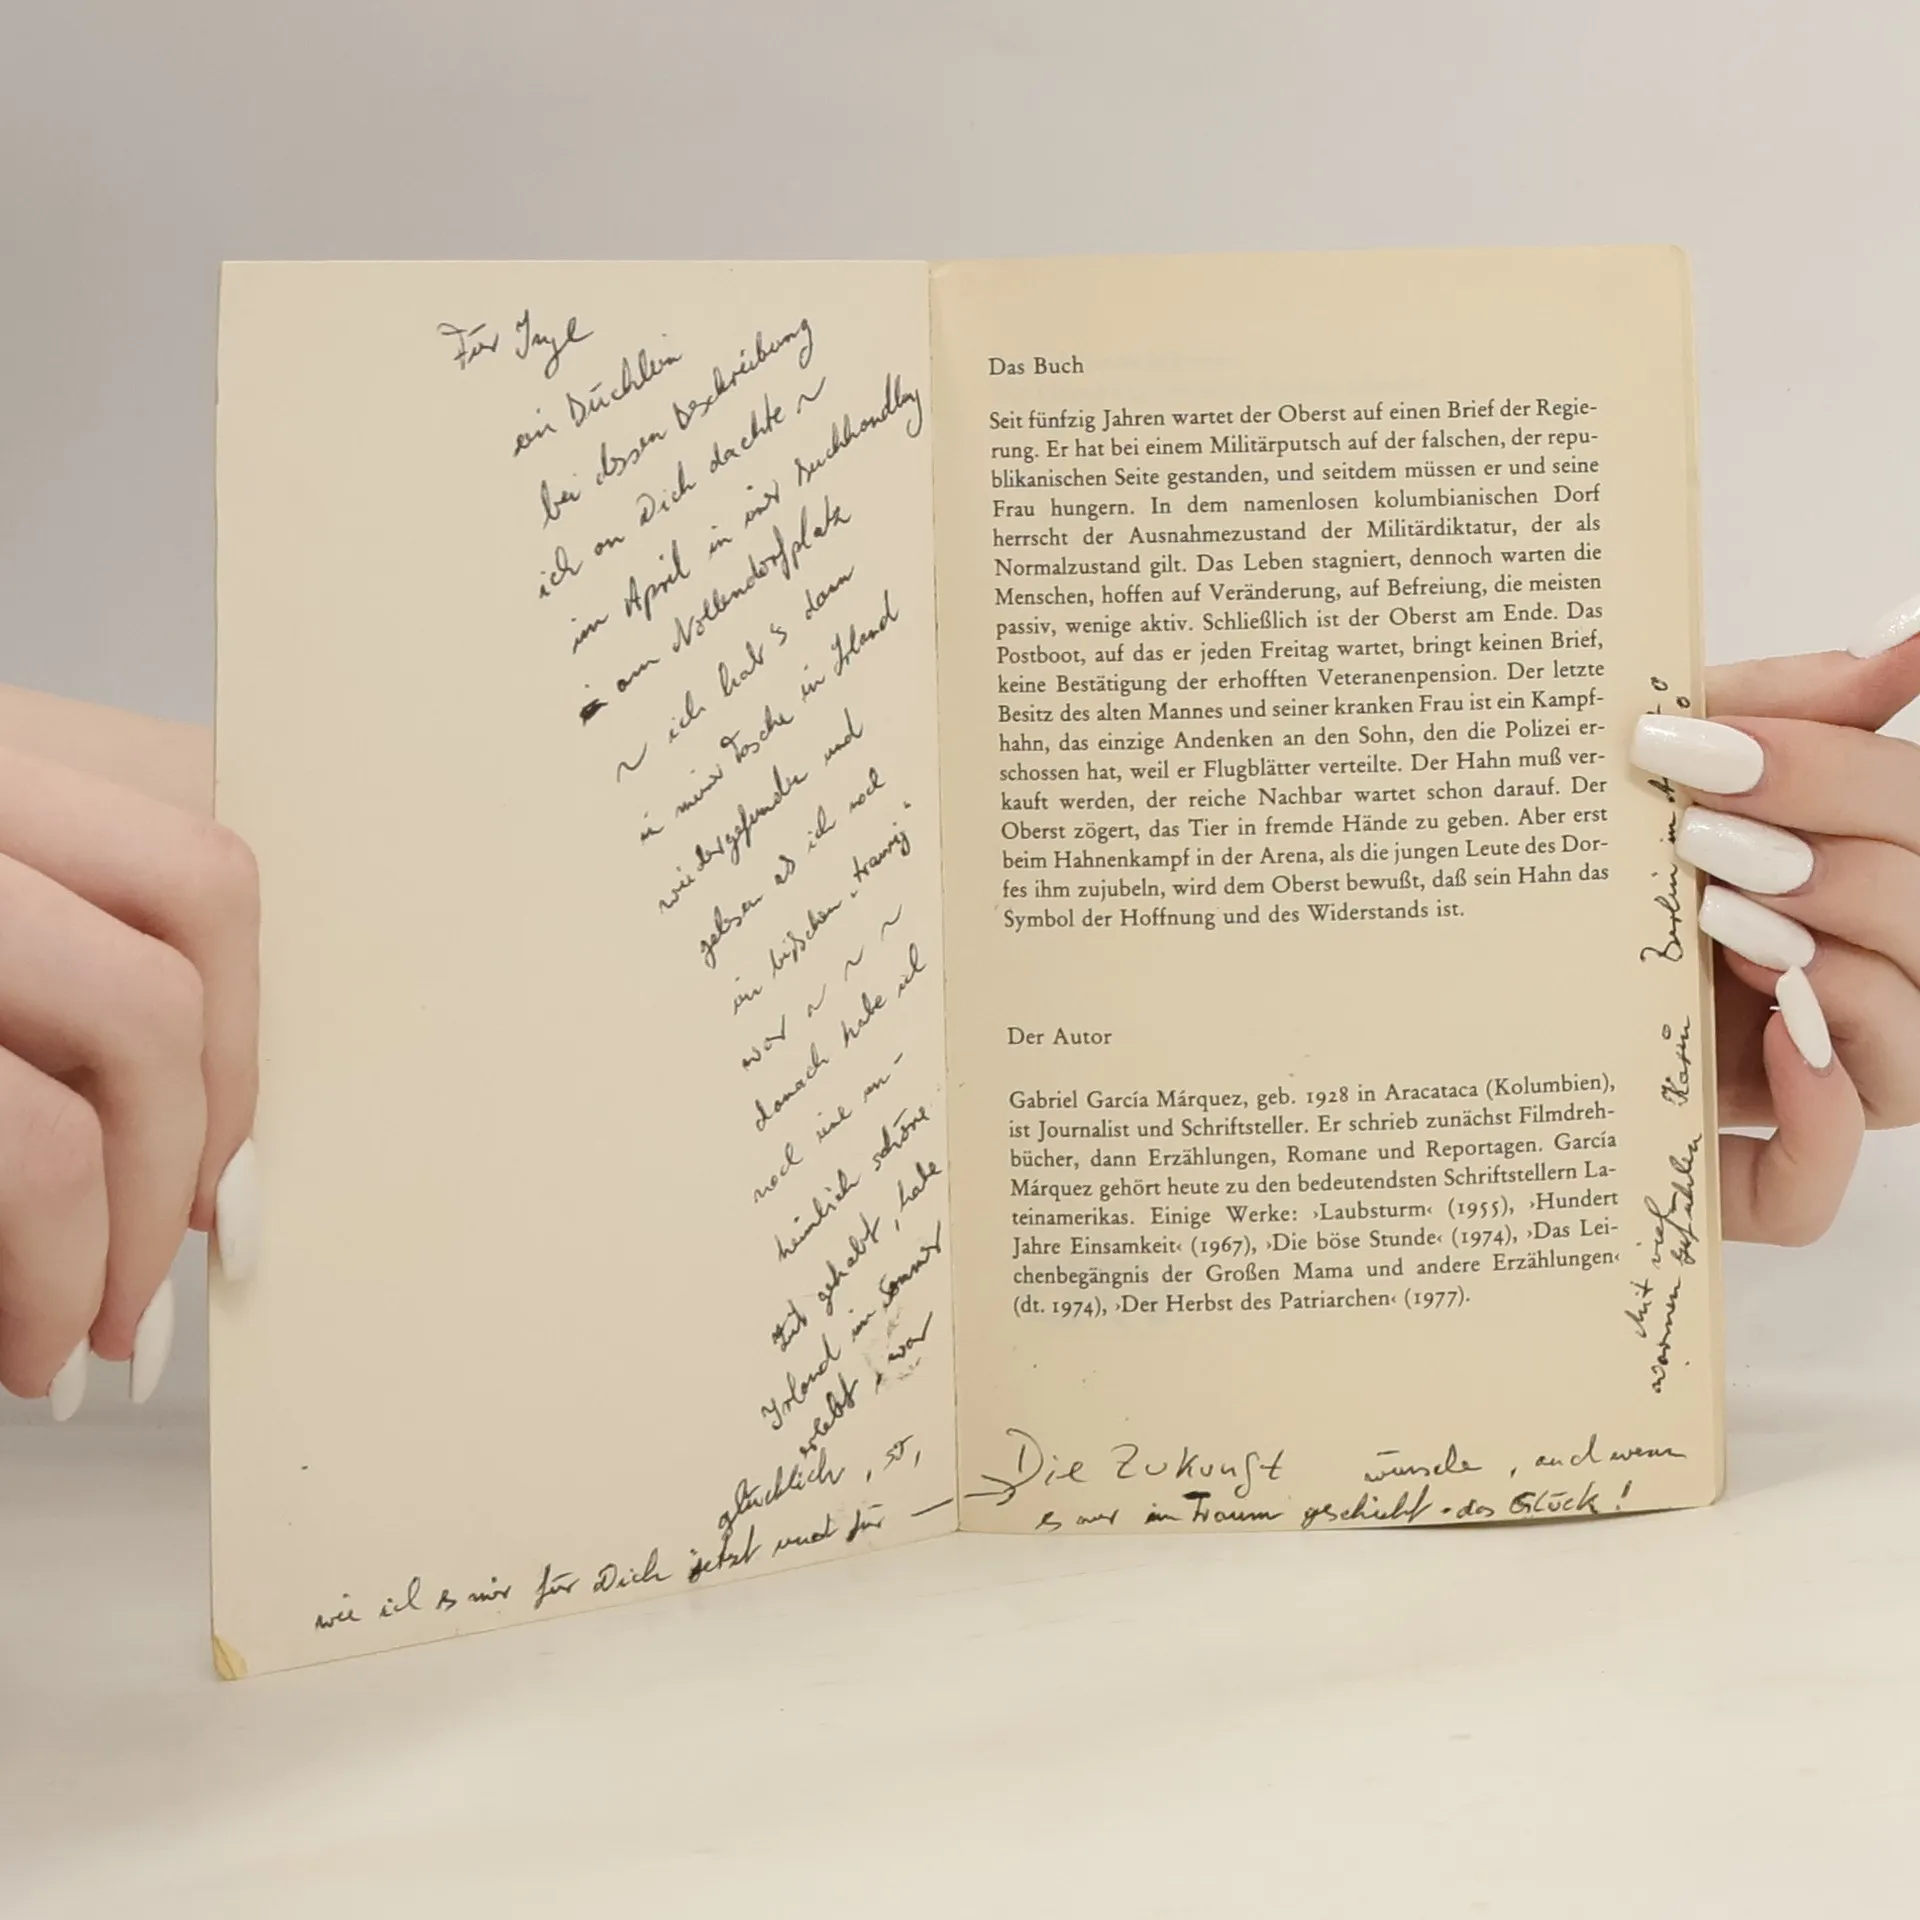 Für Inge
ein Büchlein
bei dessen Beschreibung
ich an Dich dachte ~
im April in einer Buchhandlg
am Nollendorfplatz
~ ich hab's dann
in meiner Tasche in Irland
wiedergefunden und
gelesen als ich noch
ein bißchen "traurig"
war ~ ~ ~
danach habe ich
noch eine un-
heimlich schöne
Zeit gehabt, habe
Irland im Sommer
erlebt, war
glücklich, so,
wie ich es mir für Dich jetzt und für —
→ Die Zukunft wünsche, auch wenn
es nur im Traum geschieht - das Glück!
Mit viel
warmen Gefühlen Karin Berlin im
Das Buch
Seit fünfzig Jahren wartet der Oberst auf einen Brief der Regie-
rung. Er hat bei einem Militärputsch auf der falschen, der repu-
blikanischen Seite gestanden, und seitdem müssen er und seine
Frau hungern. In dem namenlosen kolumbianischen Dorf
herrscht der Ausnahmezustand der Militärdiktatur, der als
Normalzustand gilt. Das Leben stagniert, dennoch warten die
Menschen, hoffen auf Veränderung, auf Befreiung, die meisten
passiv, wenige aktiv. Schließlich ist der Oberst am Ende. Das
Postboot, auf das er jeden Freitag wartet, bringt keinen Brief,
keine Bestätigung der erhofften Veteranenpension. Der letzte
Besitz des alten Mannes und seiner kranken Frau ist ein Kampf-
hahn, das einzige Andenken an den Sohn, den die Polizei er-
schossen hat, weil er Flugblätter verteilte. Der Hahn muß ver-
kauft werden, der reiche Nachbar wartet schon darauf. Der
Oberst zögert, das Tier in fremde Hände zu geben. Aber erst
beim Hahnenkampf in der Arena, als die jungen Leute des Dor-
fes ihm zujubeln, wird dem Oberst bewußt, daß sein Hahn das
Symbol der Hoffnung und des Widerstands ist.
Der Autor
Gabriel García Márquez, geb. 1928 in Aracataca (Kolumbien),
ist Journalist und Schriftsteller. Er schrieb zunächst Filmdreh-
bücher, dann Erzählungen, Romane und Reportagen. García
Márquez gehört heute zu den bedeutendsten Schriftstellern La-
teinamerikas. Einige Werke: ›Laubsturm‹ (1955), ›Hundert
Jahre Einsamkeit‹ (1967), ›Die böse Stunde‹ (1974), ›Das Lei-
chenbegängnis der Großen Mama und andere Erzählungen‹
(dt. 1974), ›Der Herbst des Patriarchen‹ (1977).